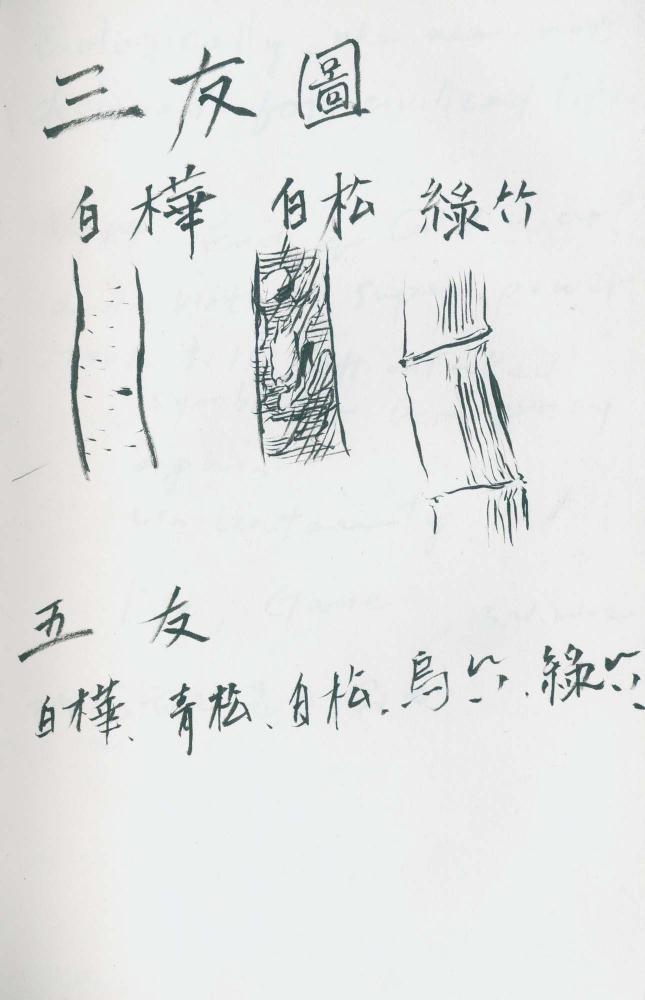 三友圖
白樺 白松 綠竹
五友
白樺、青松、白松、烏竹、綠竹、